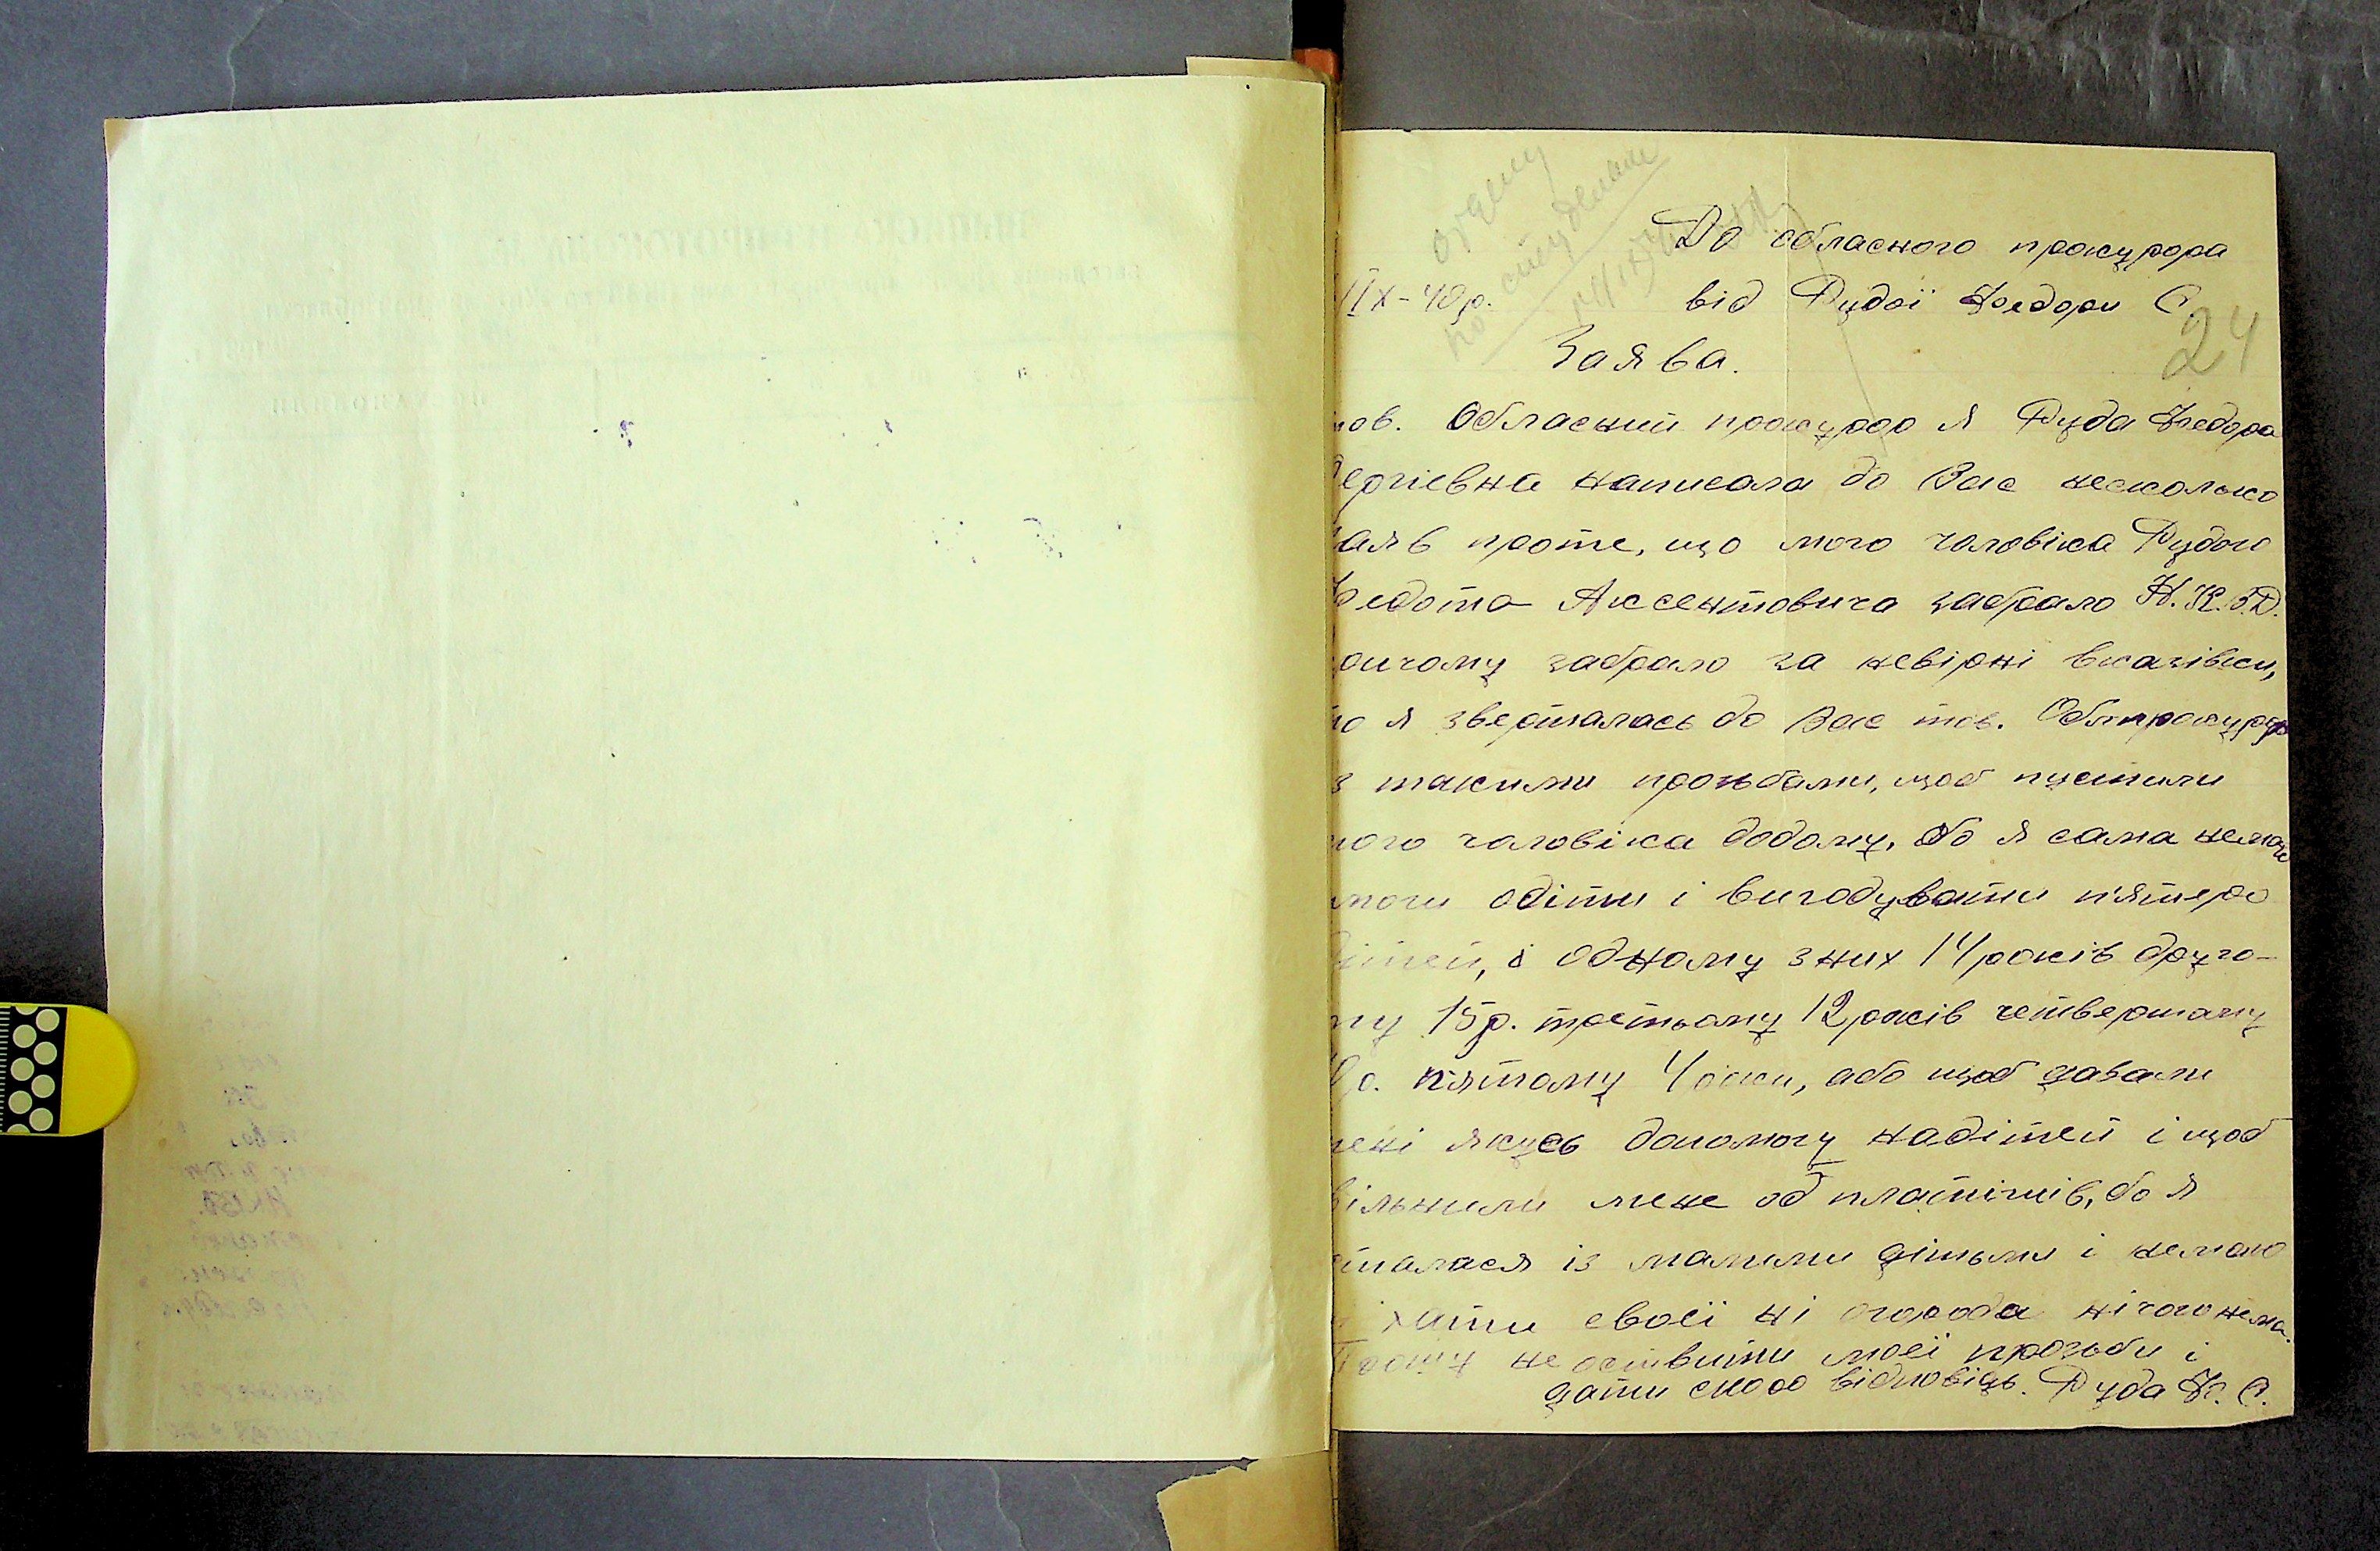 До обласного прокурора
IX-40р. від Рудої Федори С.
24
Заява.
тов. Обласний прокурор я Руда Федора
Сергіевна написала до Вас несколько
заяв проте, що мого чоловіка Рудого
Федота Аксентовича забрало Н.К.В.Д.
причому забрало за невірні вказівки,
що я зверталась до Вас тов. Облпрокурор
з такими прозьбами, щоб пустили
мого чоловіка додому, бо я сама немаю
змоги одіти і вигодувати п'ятеро
дітей, і одному з них 14 років друго-
му 15 р. третьому 12 років четвертому
р. п'ятому 4 роки, або щоб давали
мені якусь допомогу надітей і щоб
звільнили мене од платіжів, бо я
сталася із малими дітьми і немаю
хати своєї ні огорода нічого нема.
Прошу не оставити моєї прозьби і
дати скоро відповідь. Руда Ф. С.